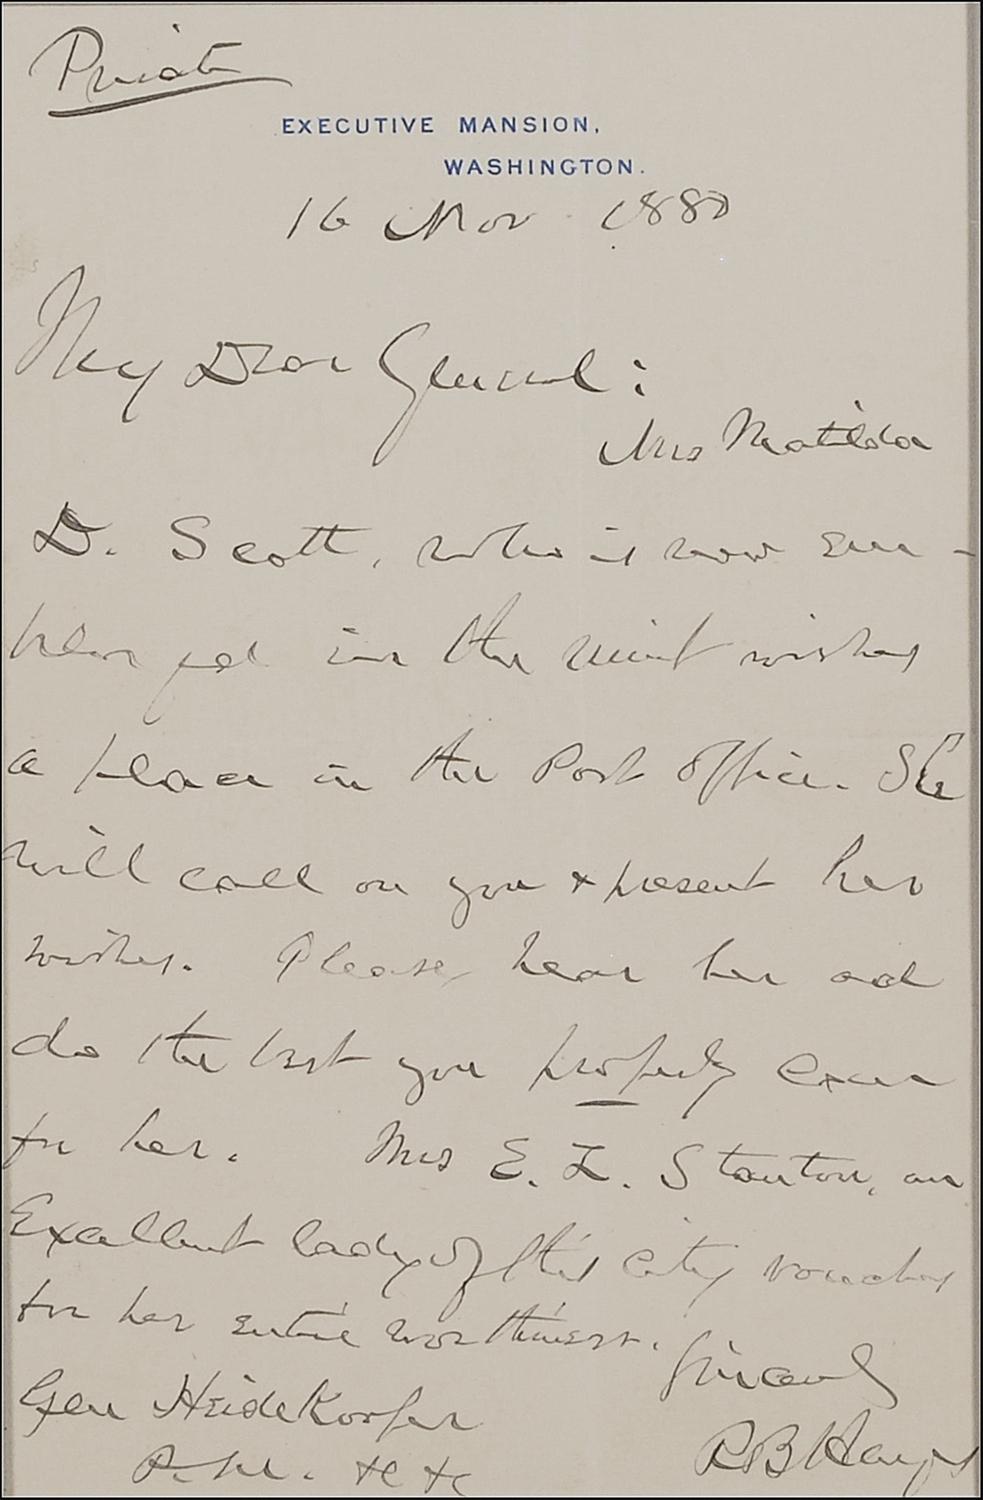 Private
EXECUTIVE MANSION,
WASHINGTON.
16 Nov 1880
My Dear General:
Mrs Matilda
D. Scott, who is now em-
ployed in the mint wishes
a place in the Post Office. She
will call on you & present her
wishes. Please hear her and
do the best you properly can
for her. Mrs E. L. Stanton, an
Excellent lady of this city vouches
for her entire worthiness.
Sincerely
Gen Heidekoper
R B Hayes
P. M. &c &c